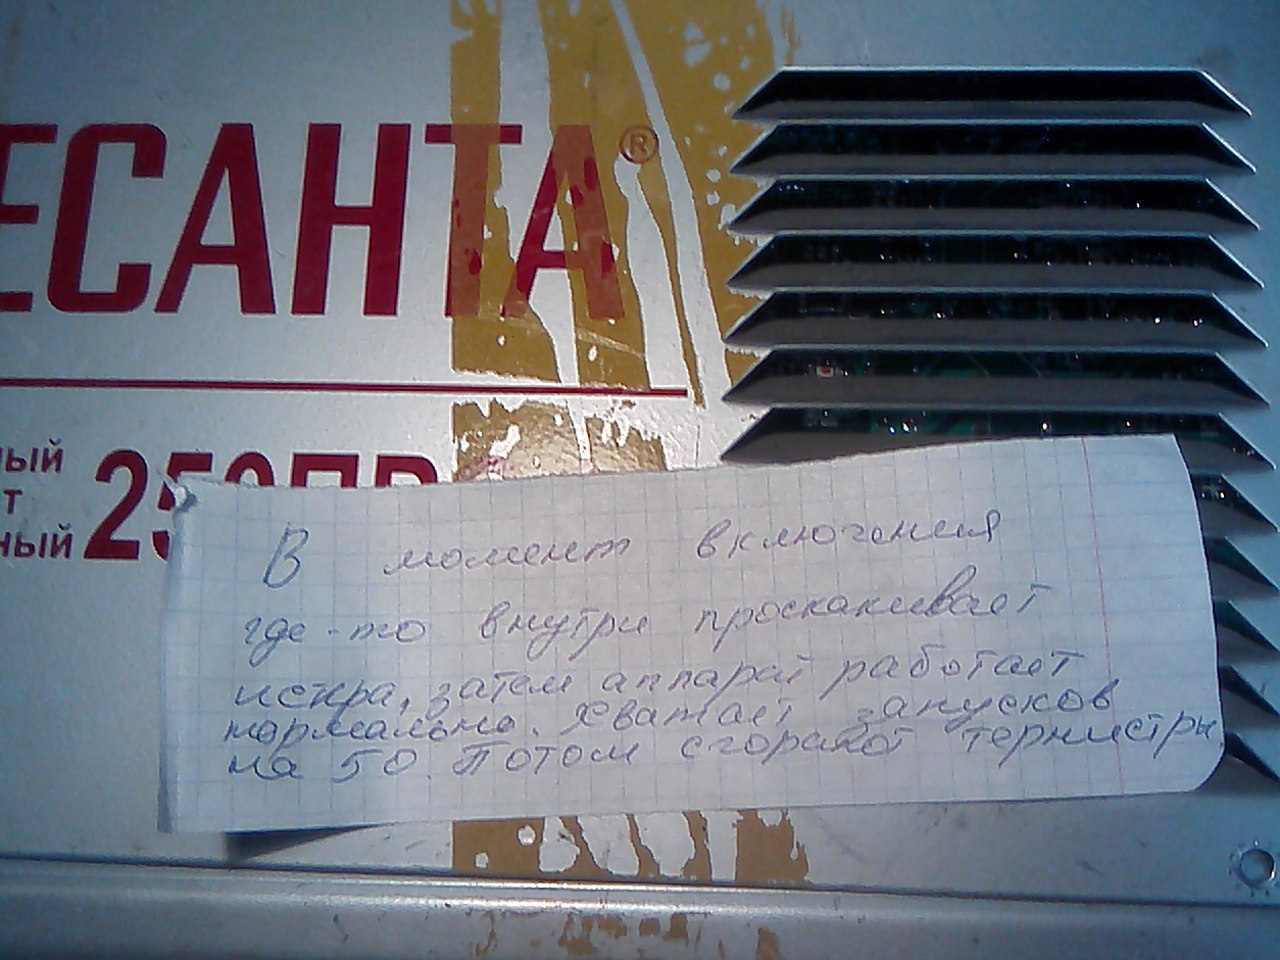 ЕСАНТА®
ный
т
ный
250ПР
В момент включения
где-то внутри проскакивает
искра, затем аппарат работает
нормально. Хватает запусков
на 50. Потом сгорают термистры.